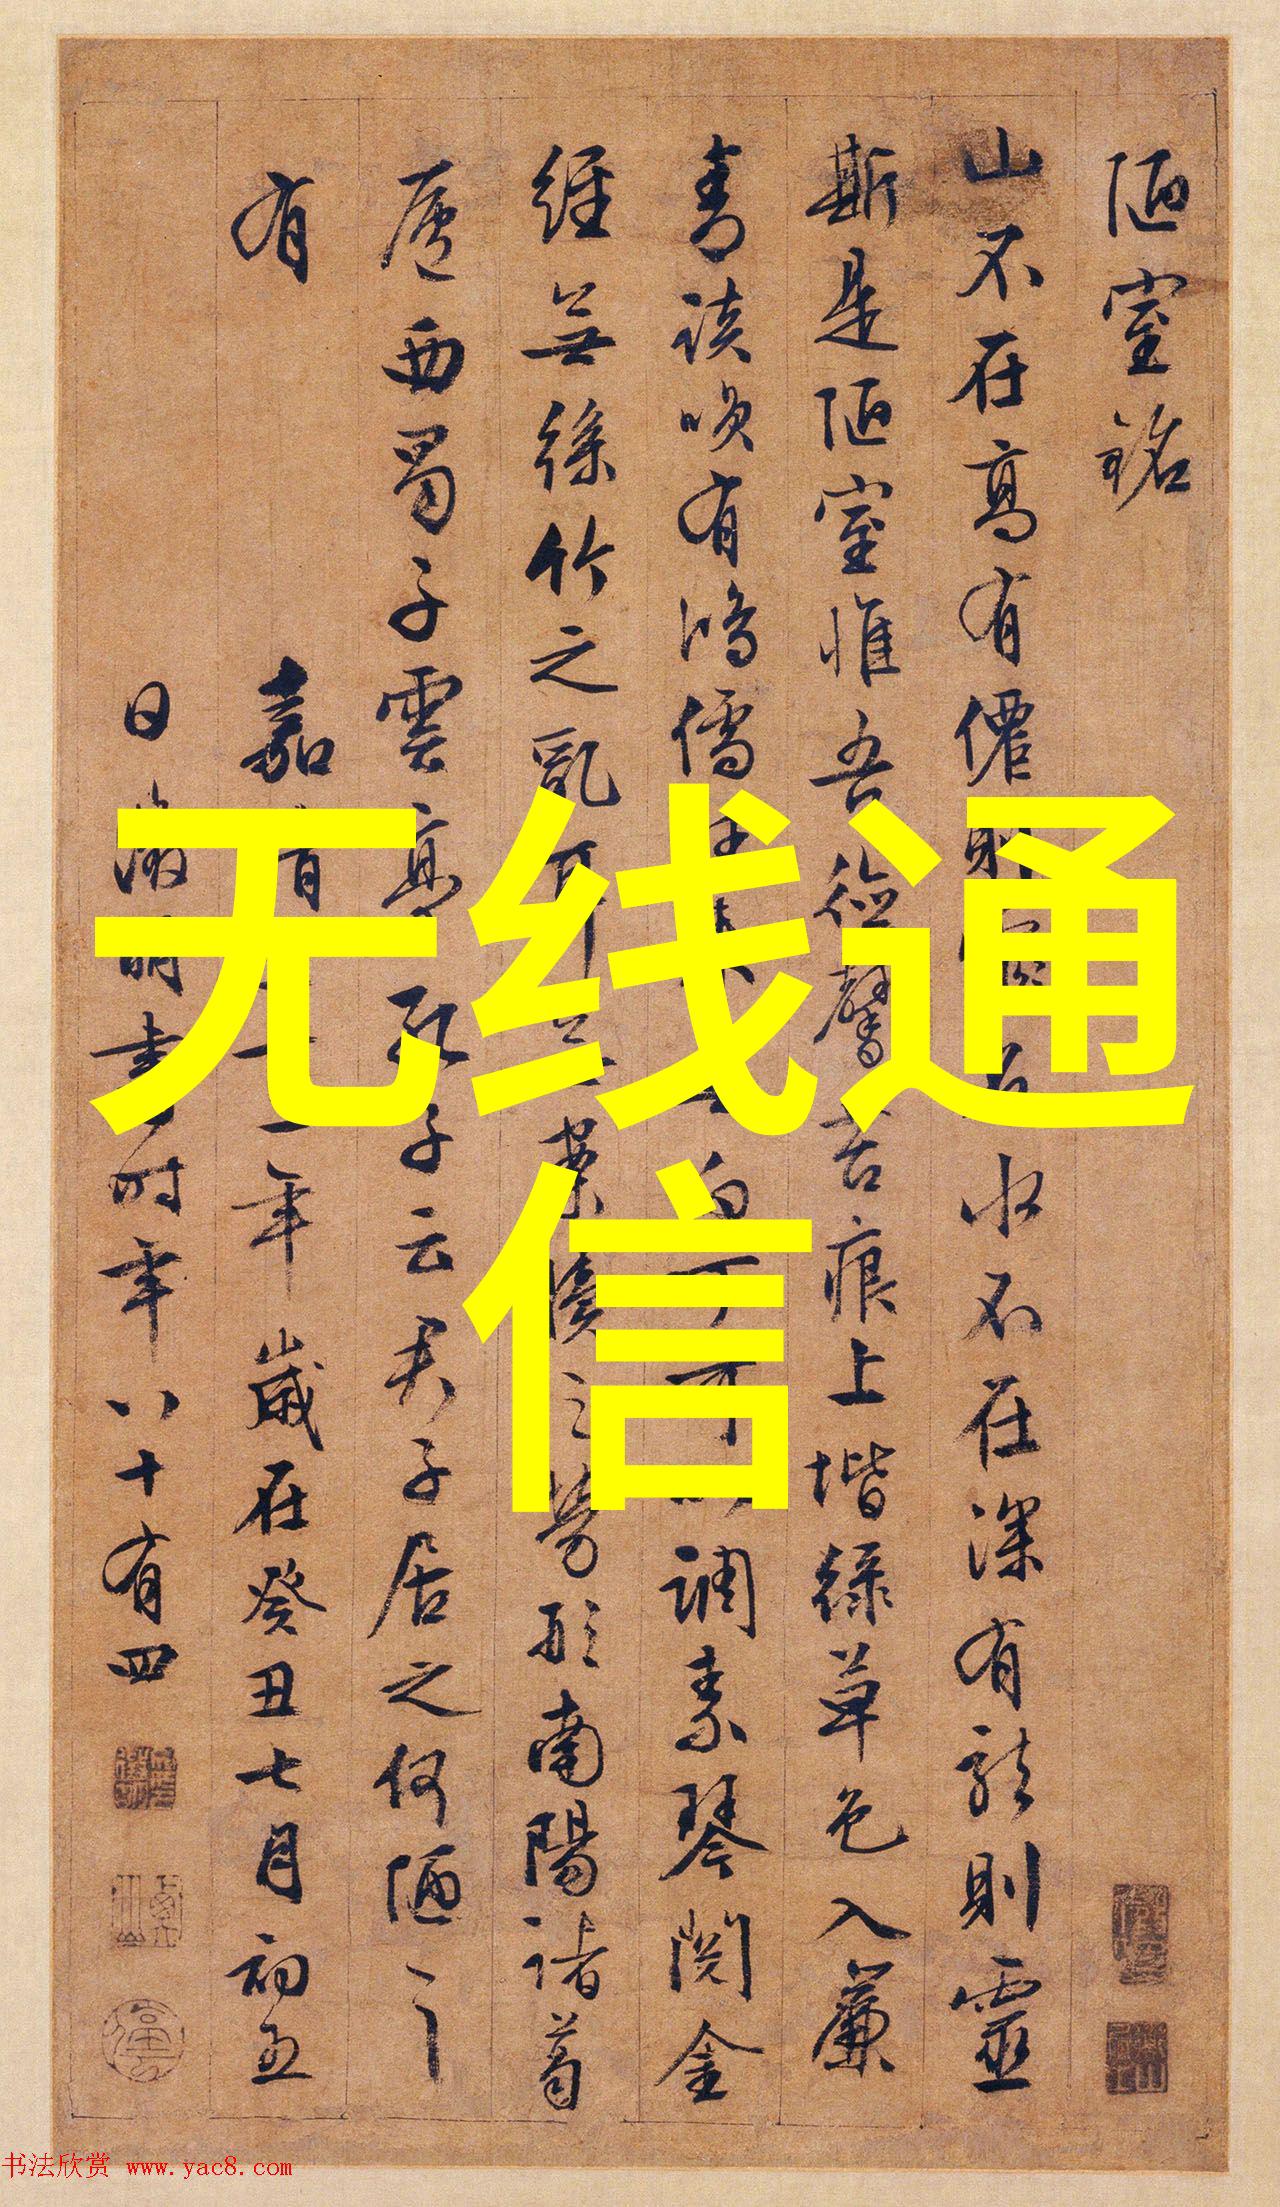 陋室銘
山不在高有僊則名水不在深有龍則靈
斯是陋室惟吾德馨苔痕上堦綠草色入簾
青談咲有鴻儒往來無白丁可以調素琴閱金
經無絲竹之亂耳無案牘之勞形南陽諸葛
廬西蜀子雲亭孔子云君子居之何陋之
有
嘉靖年歲在癸丑七月初五
日徵明書時年八十有四
无线通
信
书法欣赏 www.yac8.com